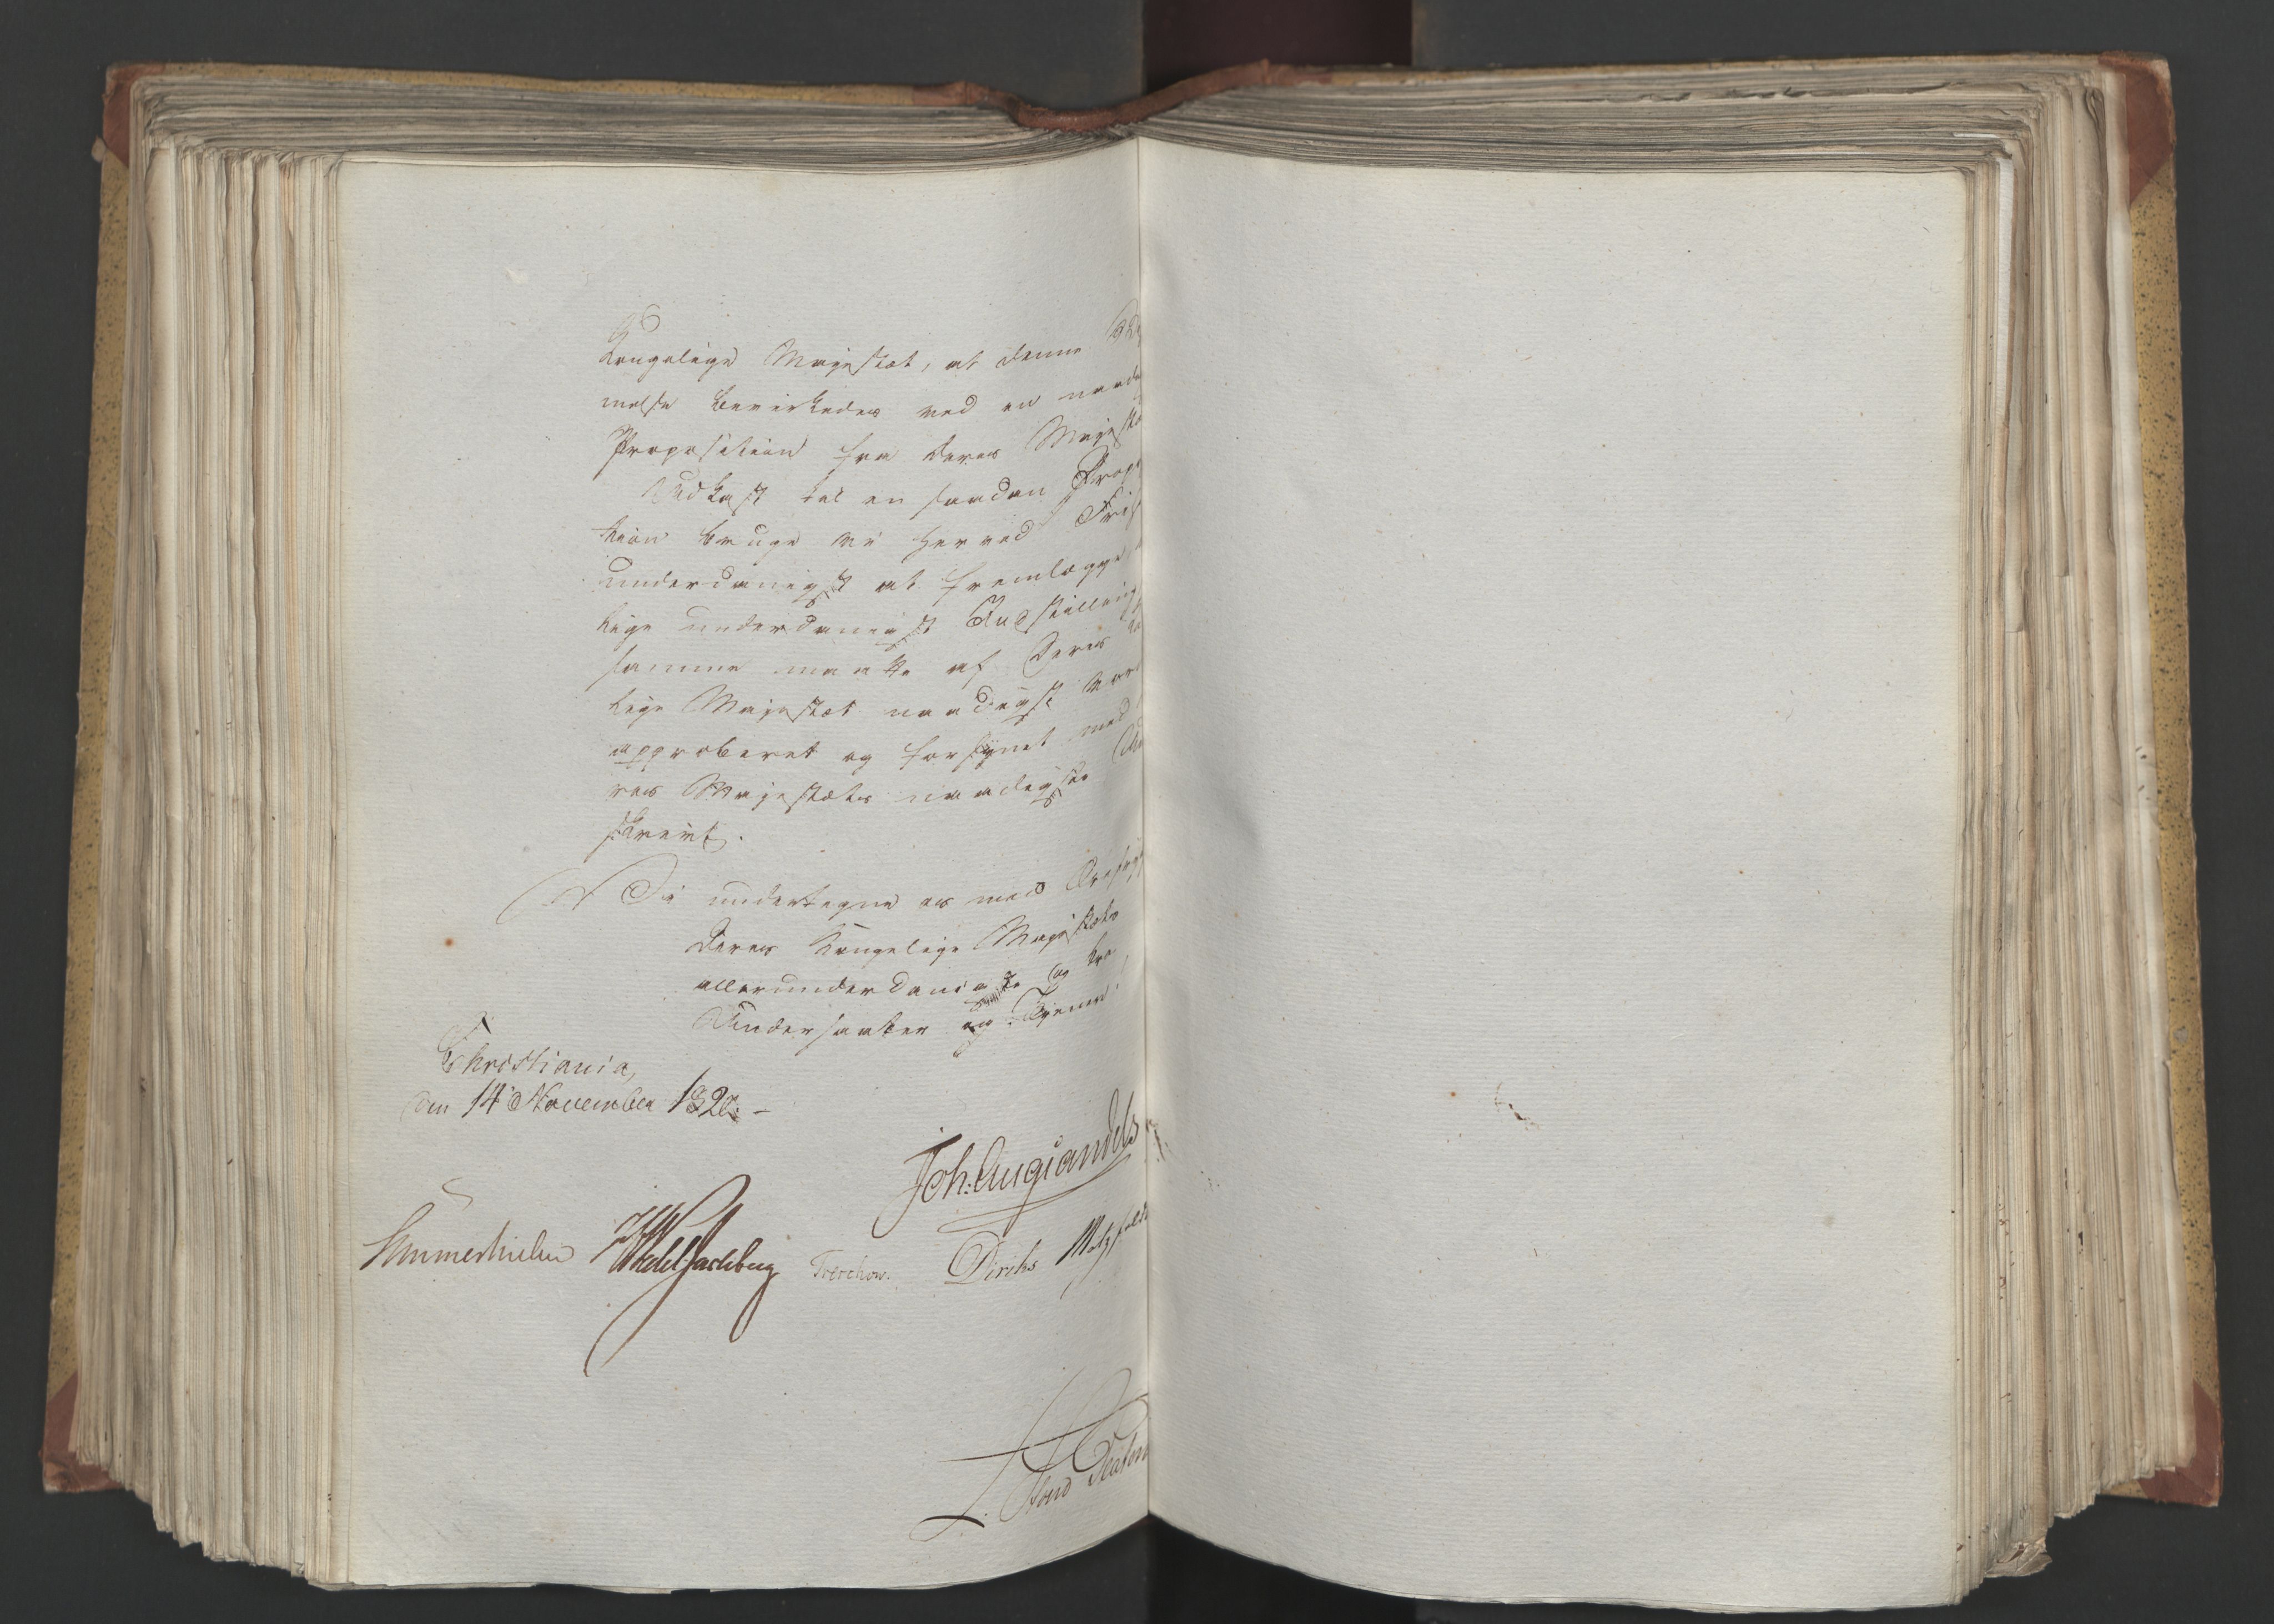 Kongelige Majestæt, at denne
melse bevirkedes ved en naadi
Proposition fra Deres Majestæ
Udkast til en saadan Propo
tion bruge vi herved Fri
underdanigst at fremlægge
lige underdanigst Indstilling
samme maatte af Deres Ko
lige Majestæt naadigst vor
approberet og forsynet med
res Majestæts naadigste Un
skrivt.
Vi undertegne os med
Deres Kongelige Majestæts
allerunderdanigste og tro
Undersaatter og Tjenere
Christiania,
den 14 November 1820. -
Joh: Aug: Sandels
Sommerhielm HWedel Jarlsberg Treschow. Diriks Motzfeldt
L. Stoud Platou